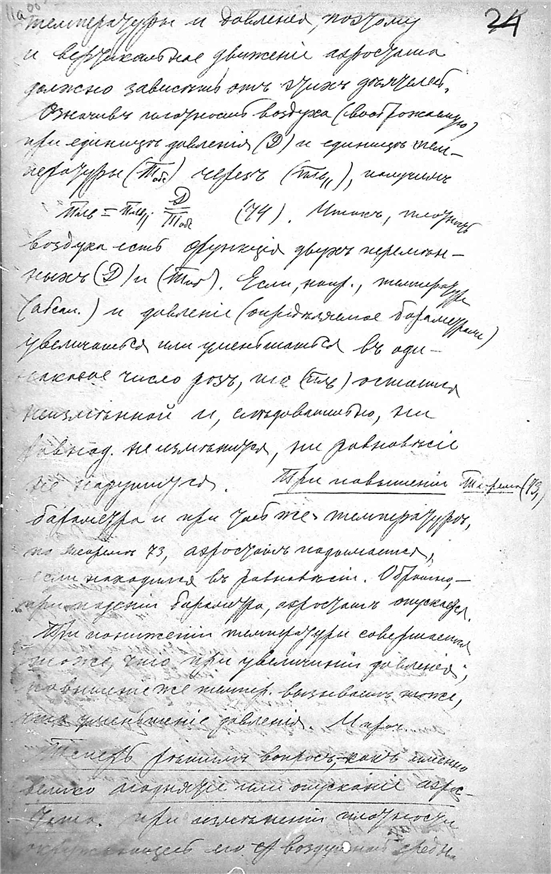 24
температуры и давленія, поэтому
и вертикальное движеніе аэростата
должно зависѣть отъ этихъ дѣятелей.
Означивъ плотность воздуха
при единицѣ давленія (D) и единицѣ тем-
пературы (Tаб) черезъ (Плв₁), получимъ
Плв = Плв₁ · D/Tаб (74). Итакъ, плотность
воздуха есть функція двухъ перемѣн-
ныхъ (D) и (Tаб). Если, напр., температура
(абсол.) и давленіе (опредѣляемое барометромъ)
увеличатся или уменьшатся въ оди-
наковое число разъ, то (Плв) останется
неизмѣнной и, слѣдовательно, ни
не измѣнится, ни равновѣсіе
не нарушится. При повышеніи Теорема (73)
барометра и при той же температурѣ,
по теоремѣ 73, аэростатъ поднимается,
если находился въ равновѣсіи. Обратно
при паденіи барометра, аэростатъ опускается.
При пониженіи температуры совершается
то же, что при увеличеніи давленія;
повышеніе же темпер. вызываетъ то же,
что уменьшеніе давленія.
Теперь рѣшимъ вопросъ какъ именно
велико поднятіе или опусканіе аэро-
стата при измѣненіи плотности
окружающей его воздушной среды